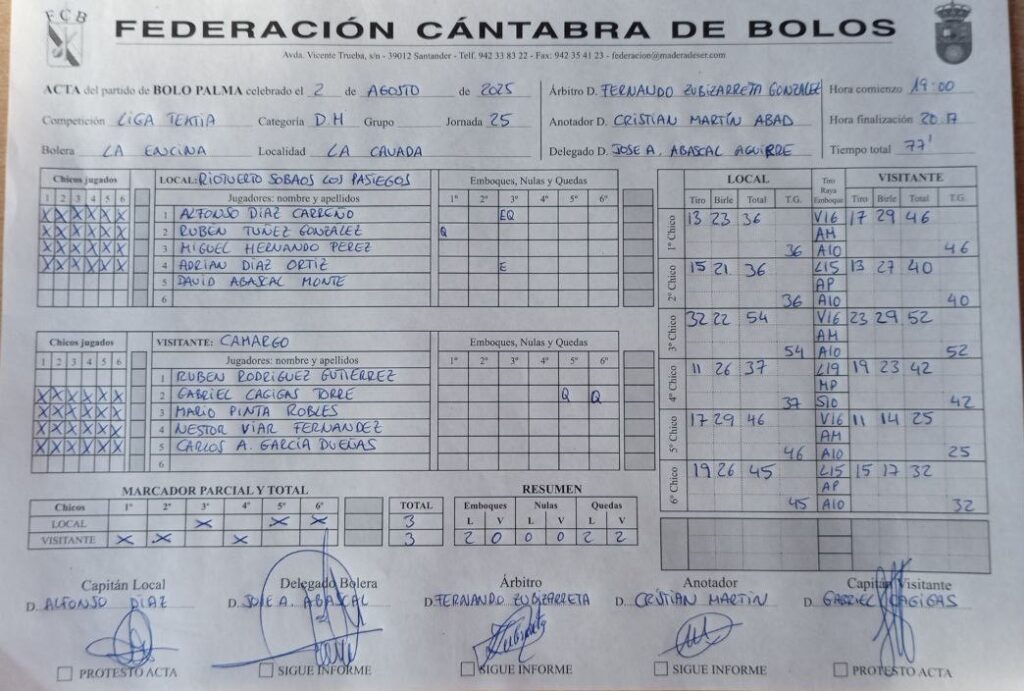 FCB
FEDERACIÓN CÁNTABRA DE BOLOS
Avda. Vicente Trueba, s/n - 39012 Santander - Telf. 942 33 82 22 - Fax: 942 35 41 23 - federacion@maderadeser.com
ACTA del partido de BOLO PALMA celebrado el 2 de AGOSTO de 2025
Competición LIGA TEXTIA Categoría DH Grupo Jornada 25
Bolera LA ENCINA Localidad LA CAVADA
Árbitro D. FERNANDO ZUBIZARRETA GONZALEZ Hora comienzo 19:00
Anotador D. CRISTIAN MARTÍN ABAD Hora finalización 20.17
Delegado D. JOSE A. ABASCAL AGUIRRE Tiempo total 77'
Chicos jugados LOCAL: RIOTUERTO SOBAOS LOS PASIEGOS Emboques, Nulas y Quedas
1 2 3 4 5 6 Jugadores: nombre y apellidos 1º 2º 3º 4º 5º 6º
X X X X X X 1 ALFONSO DÍAZ CARREÑO EQ
X X X X X X 2 RUBEN TUÑEZ GONZALEZ Q
X X X X X X 3 MIGUEL HERNANDO PEREZ
X X X X X X 4 ADRIAN DÍAZ ORTIZ E
5 DAVID ABASCAL MONTE
6
Chicos jugados VISITANTE: CAMARGO Emboques, Nulas y Quedas
1 2 3 4 5 6 Jugadores: nombre y apellidos 1º 2º 3º 4º 5º 6º
1 RUBEN RODRIGUEZ GUTIERREZ
X X X X X X 2 GABRIEL CAGIGAS TORRE Q Q
X X X X X X 3 MARIO PINTA ROBLES
X X X X X X 4 NESTOR VIAR FERNANDEZ
X X X X X X 5 CARLOS A. GARCÍA DUEÑAS
6
LOCAL Tiro Raya Emboque VISITANTE
Tiro Birle Total T.G. Tiro Birle Total T.G.
1º Chico 13 23 36 V16 17 29 46
AM
36 A10 46
2º Chico 15 21 36 L15 13 27 40
AP
36 A10 40
3º Chico 32 22 54 V16 23 29 52
AM
54 A10 52
4º Chico 11 26 37 L19 19 23 42
MP
37 S10 42
5º Chico 17 29 46 V16 11 14 25
AM
46 A10 25
6º Chico 19 26 45 L15 15 17 32
AP
45 A10 32
MARCADOR PARCIAL Y TOTAL
Chicos 1º 2º 3º 4º 5º 6º TOTAL
LOCAL X X X 3
VISITANTE X X X 3
RESUMEN
Emboques Nulas Quedas
L V L V L V
2 0 0 0 2 2
Capitán Local Delegado Bolera Árbitro Anotador Capitán Visitante
D. ALFONSO DÍAZ D. JOSE A. ABASCAL D. FERNANDO ZUBIZARRETA D. CRISTIAN MARTÍN D. GABRIEL CAGIGAS
PROTESTO ACTA SIGUE INFORME SIGUE INFORME SIGUE INFORME PROTESTO ACTA